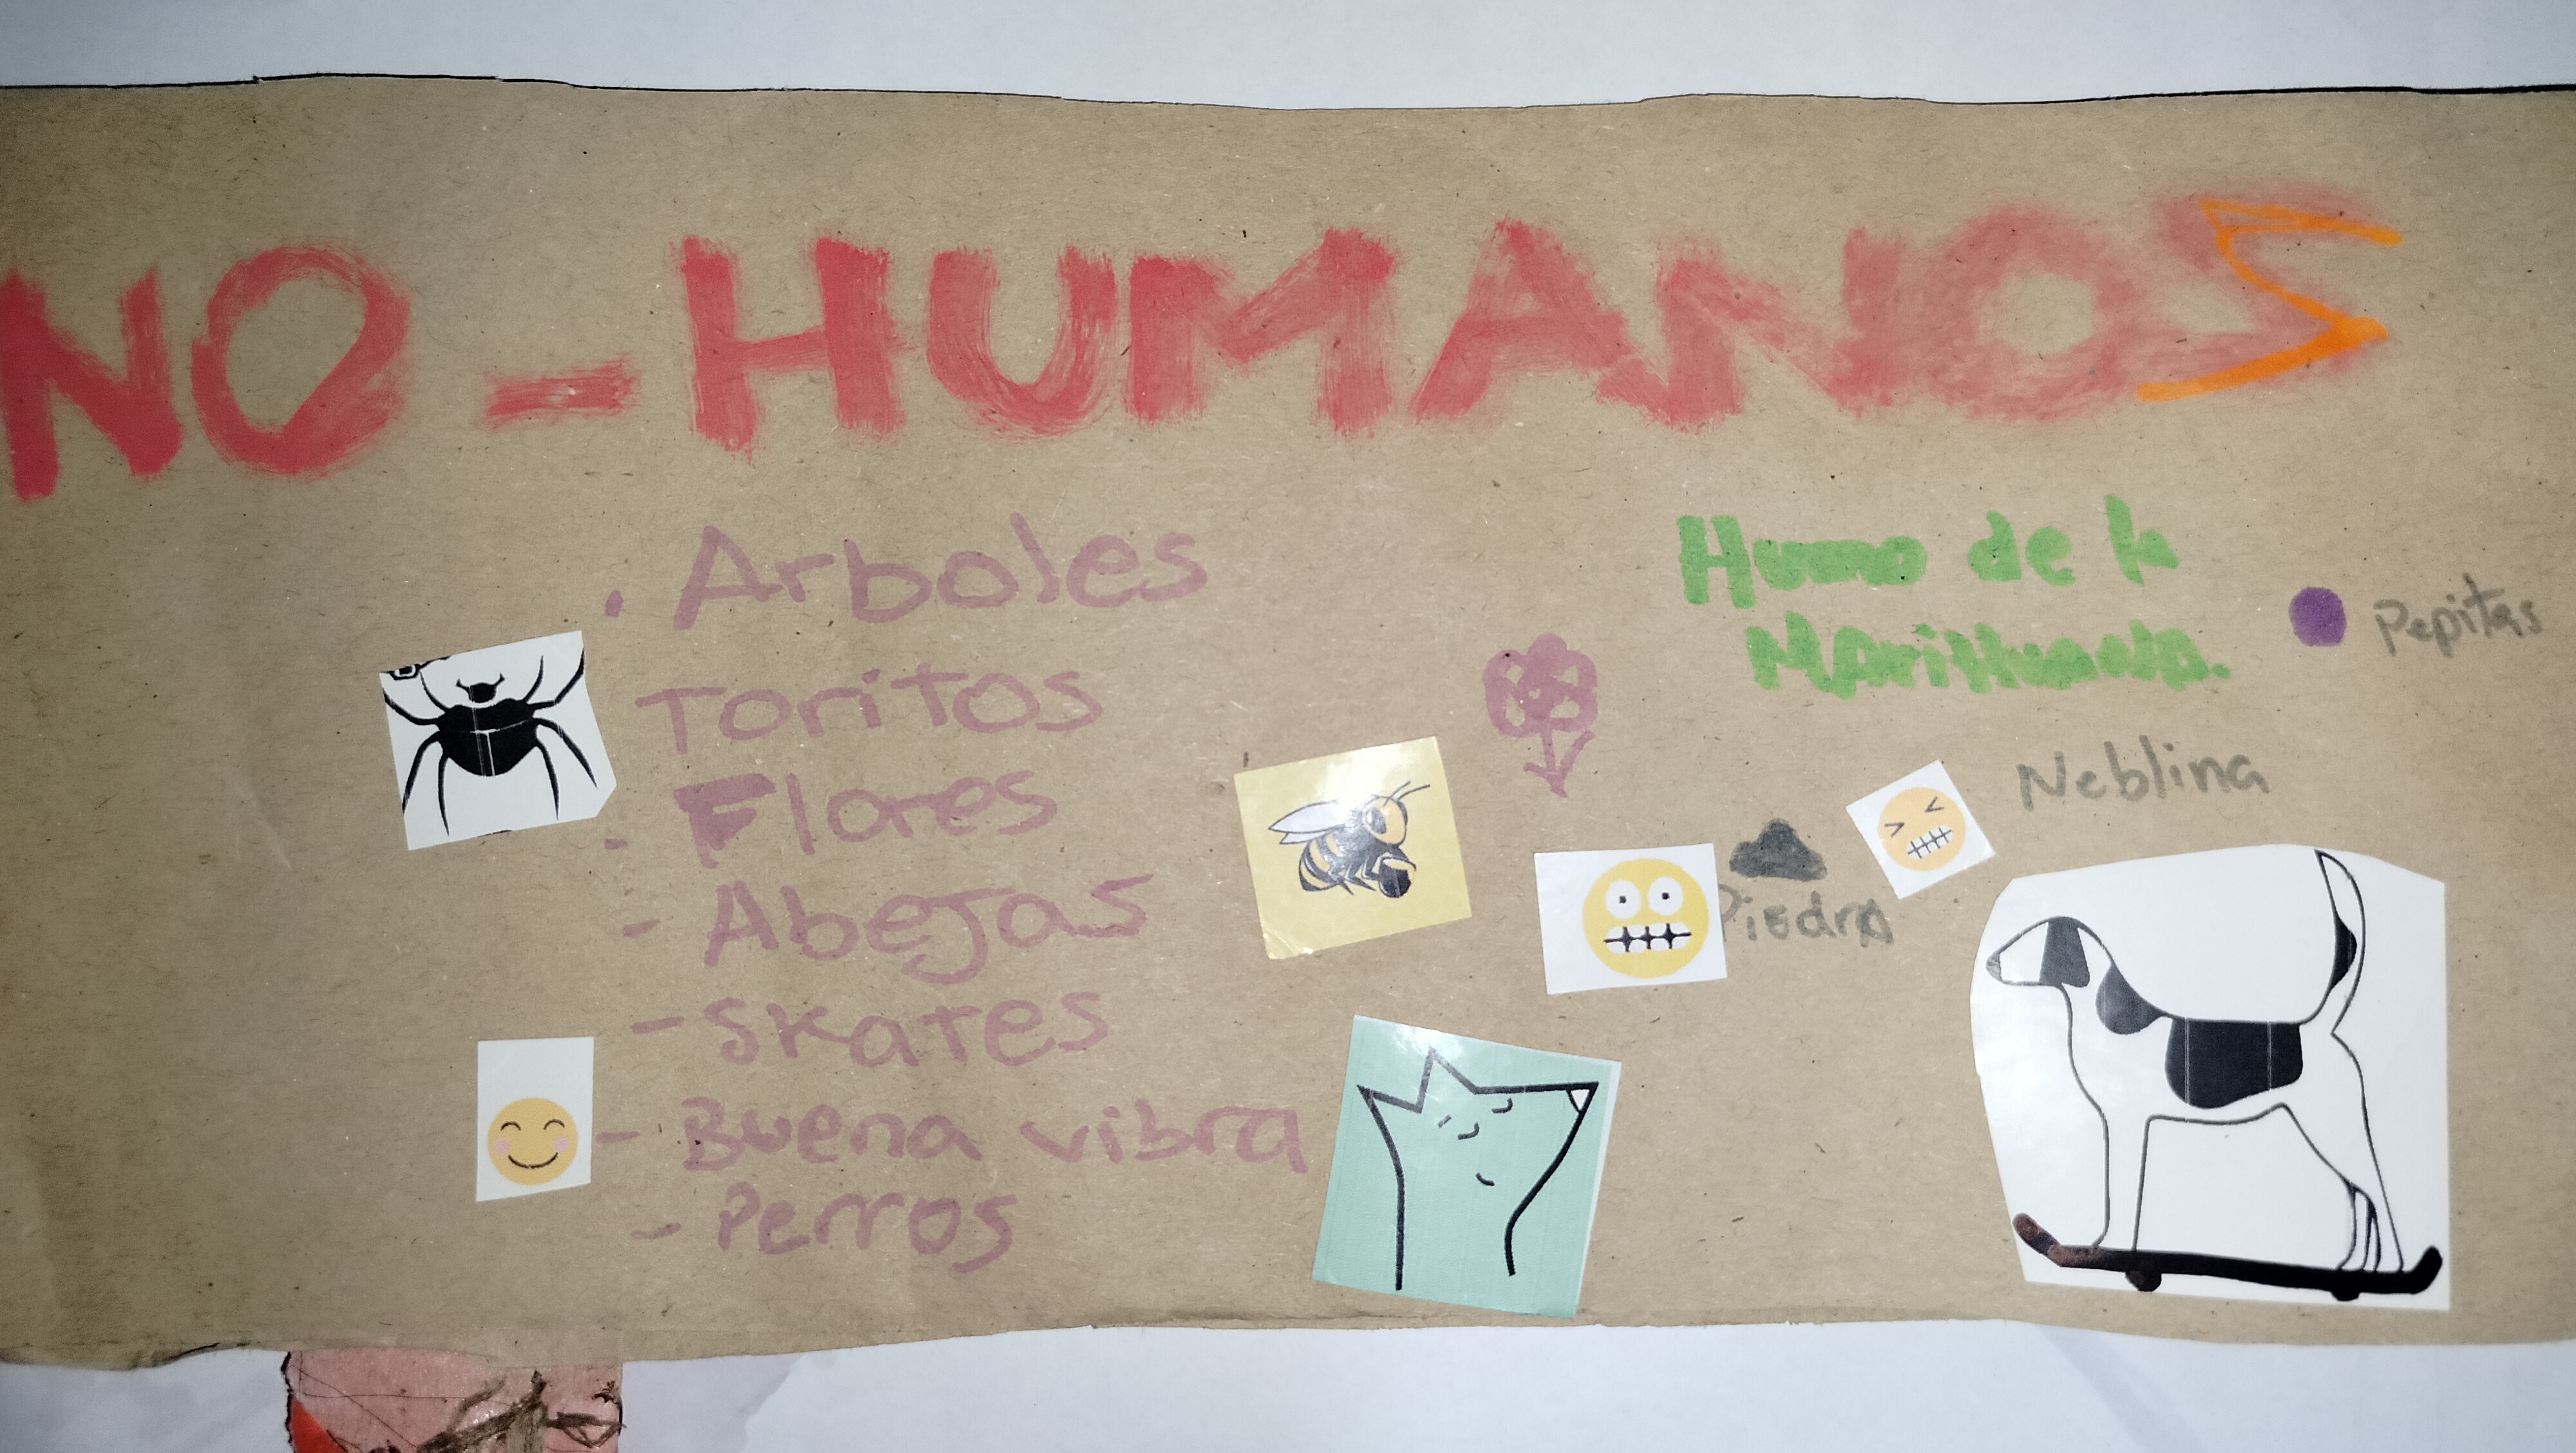 NO-HUMANOS
. Arboles
Toritos
- Flores
- Abejas
- Skates
- Buena vibra
- Perros
Humo de la
Marihuana.
Pepitas
Neblina
Piedra